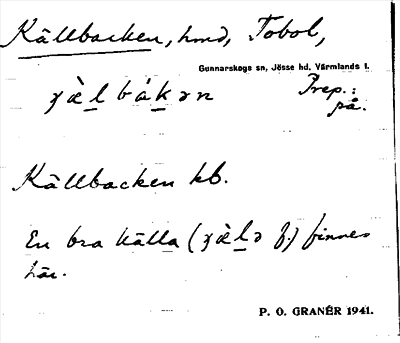 Källbacken, hmd, Tobol,
Gunnarskogs sn, Jösse hd, Värmlands l.
Prep.:
på.
Källbacken kb.
En bra källa (    f.) finnes
här.
P. O. GRANÉR 1941.